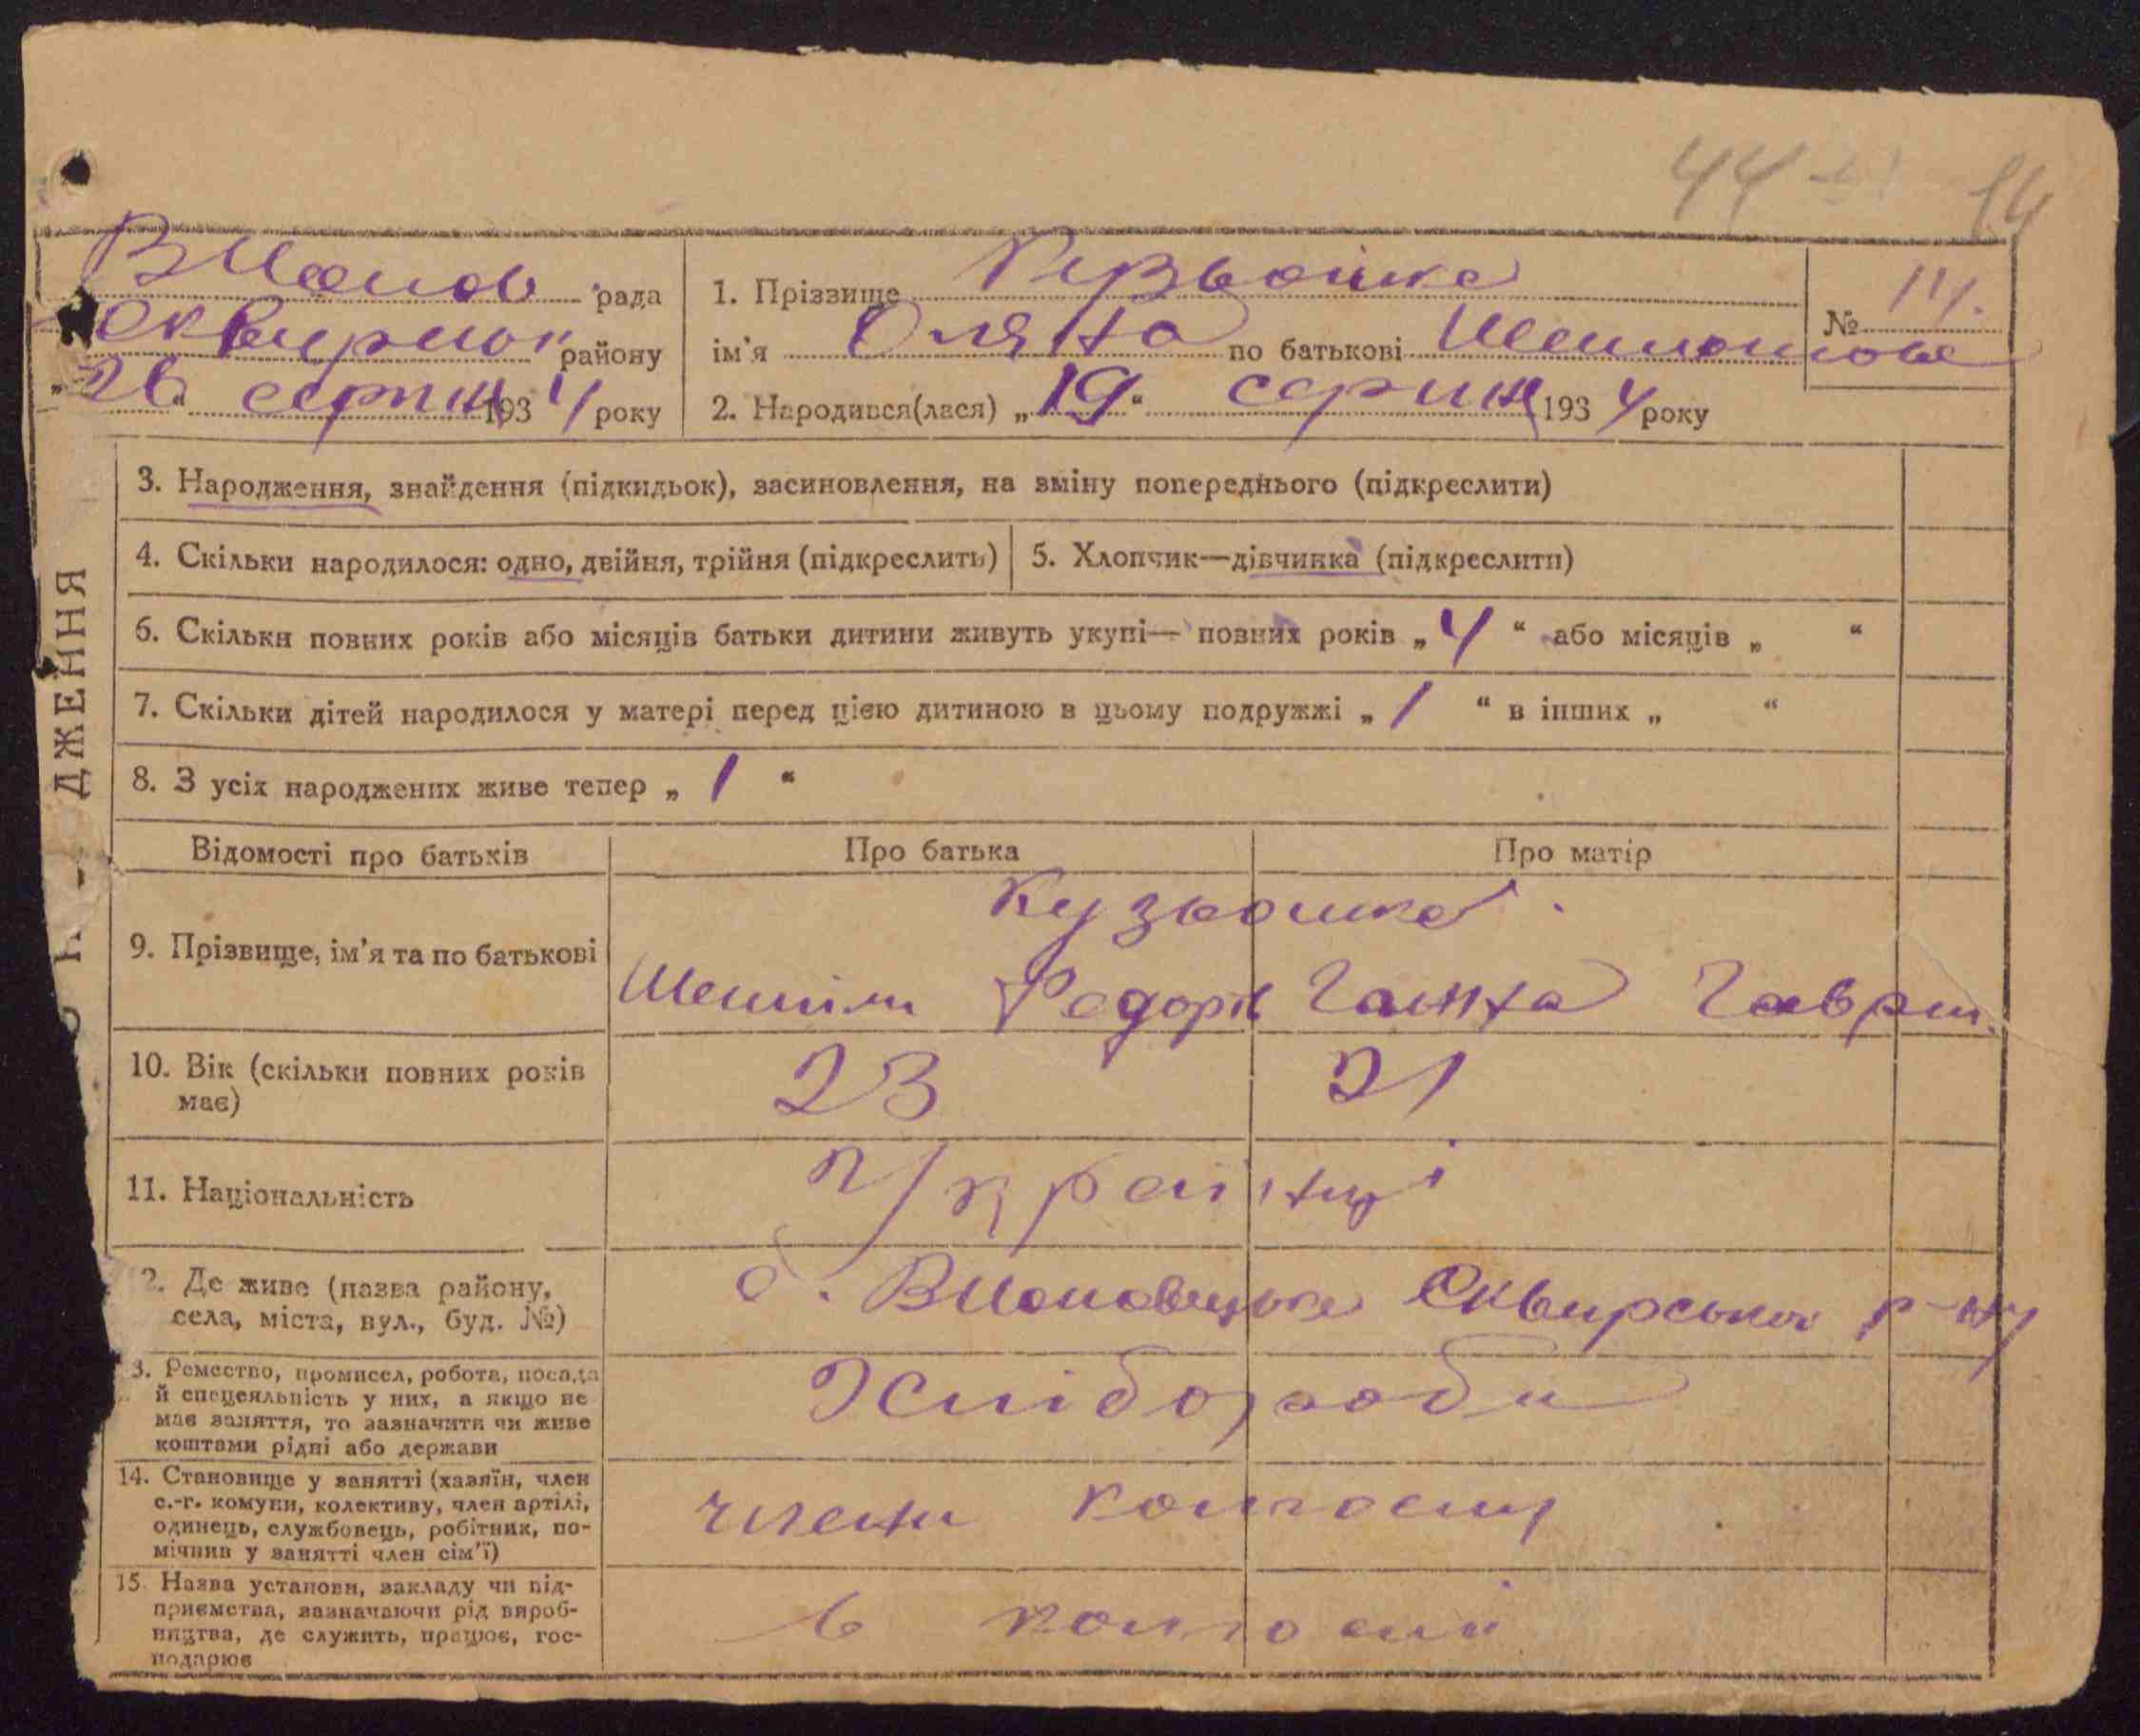 44 14
рада
Сквирськ району
"26" серпня 1934 року
1. Прізвище
ім'я Оляна по батькові
№ 11.
2. Народився(лася) „19“ серпня 1934 року
3. Народження, знайдення (підкидьок), засиновлення, на зміну попереднього (підкреслити)
4. Скільки народилося: одно, двійня, трійня (підкреслить)
5. Хлопчик—дівчинка (підкреслити)
6. Скільки повних років або місяців батьки дитини живуть укупі— повних років „4“ або місяців „ “
7. Скільки дітей народилося у матері перед цією дитиною в цьому подружжі „1“ в інших „ “
8. З усіх народжених живе тепер „1“
ДЖЕННЯ
Відомості про батьків
Про батька
Про матір
9. Прізвище, ім'я та по батькові
Кузьоменко
Федорів Ганна Гаврил.
10. Вік (скільки повних років
має)
23
21
11. Національність
Українці
2. Де живе (назва району,
села, міста, вул., буд. №)
с. Сквирського р-ну
3. Ремество, промисел, робота, посада
й спецеяльність у них, а якщо не
має заняття, то зазначити чи живе
коштами рідні або держави
Хлібороби
14. Становище у занятті (хазяїн, член
с.-г. комуни, колективу, член артілі,
одинець, службовець, робітник, по-
мічний у занятті член сім'ї)
члени колгоспу
15. Назва установи, закладу чи під-
приємства, зазначаючи рід вироб-
ництва, де служить, працює, гос-
подарює
в колгоспі